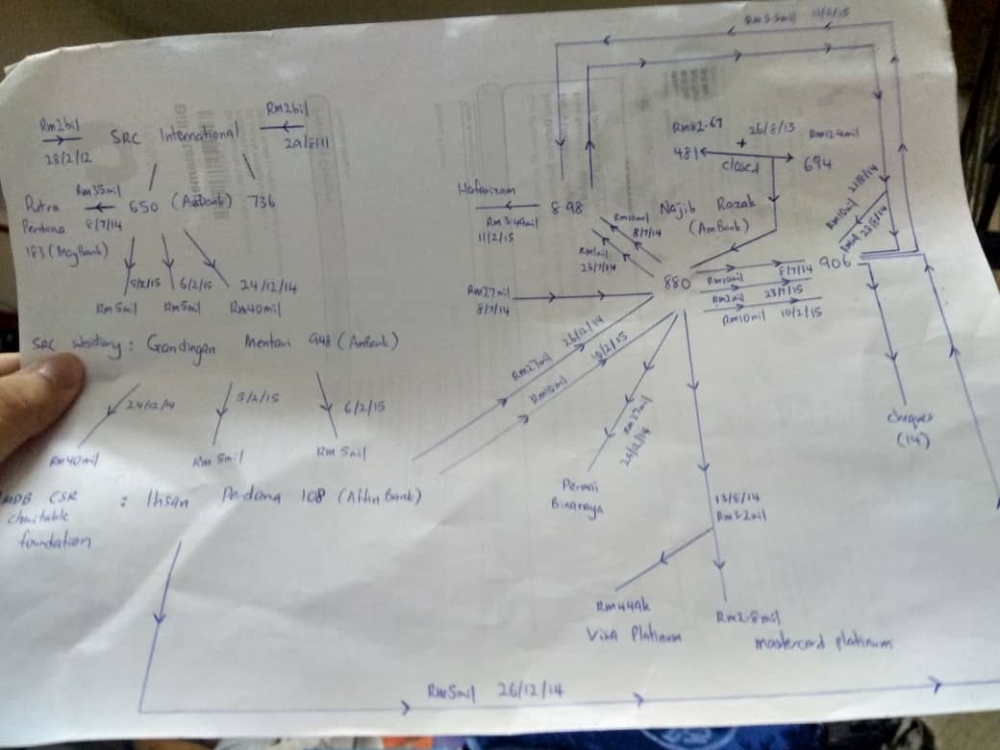 Rm2bil
28/2/12
SRC International
Rm2bil
29/8/11
Putra Perdana 183 (MayBank)
Rm35mil
8/7/14
650 (AmBank) 736
5/2/15
6/2/15
24/12/14
Rm5mil
Rm5mil
Rm40mil
SRC subsidiary : Gandingan Mentari 948 (AmBank)
24/12/14
5/2/15
6/2/15
Rm40mil
Rm 5mil
Rm 5mil
CSR charitable foundation : Ihsan Perdana 108 (Affin Bank)
Rm5mil 26/12/14
11/2/15
Rm82.67
26/8/13
+
Rm12.4mil
481
closed
694
Najib Razak
(AmBank)
898
Rm3.49mil
11/2/15
Rm10mil
8/7/14
Rm1mil
23/7/14
Rm27mil
8/7/14
880
Rm10mil
8/7/14
Rm2mil
23/7/15
Rm10mil 10/2/15
906
Rm10mil
cheques
(14)
Rm27mil 26/12/14
Rm10mil 10/2/15
Rm27mil
24/12/14
Permai
Binaraya
13/8/14
Rm3.2mil
Rm449k
Visa Platinum
Rm2.8mil
mastercard platinum